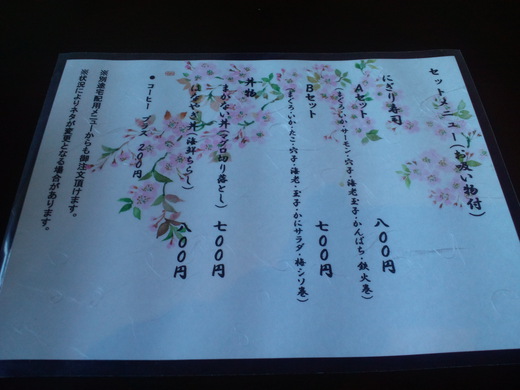 セットメニュー(お吸い物付)
にぎり寿司
Aセット 八〇〇円
(まぐろ・いか・サーモン・穴子・海老・玉子・かんぱち・鉄火巻)
Bセット 七〇〇円
(まぐろ・いか・たこ・穴子・海老・玉子・かにサラダ・梅シソ巻)
丼物
まかない丼(マグロ切り落とし) 七〇〇円
丼(海鮮ちらし) 八〇〇円
●コーヒー プラス 200円
※別途宅配用メニューからも御注文頂けます。
※状況によりネタが変更となる場合があります。